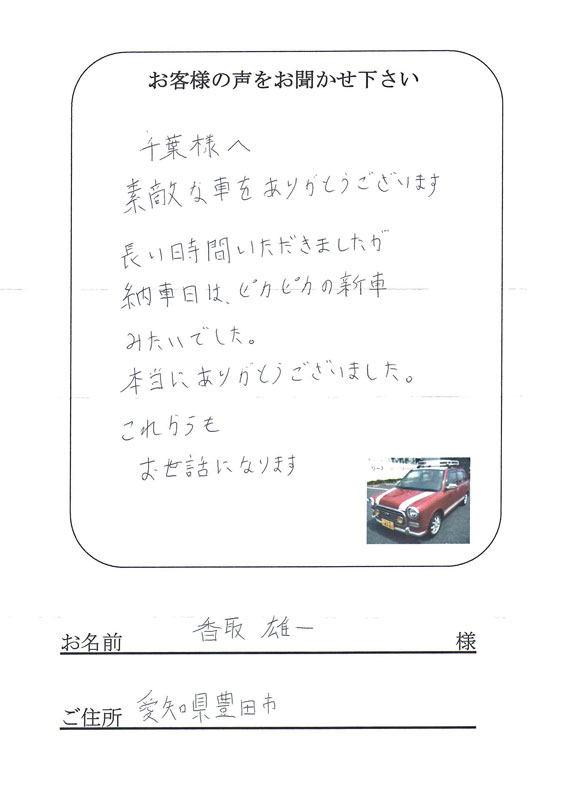 お客様の声をお聞かせ下さい
千葉様へ
素敵な車をありがとうございます
長い時間いただきましたが
納車日は、ピカピカの新車
みたいでした。
本当にありがとうございました。
これからも
お世話になります
お名前 香取 雄一 様
ご住所 愛知県豊田市